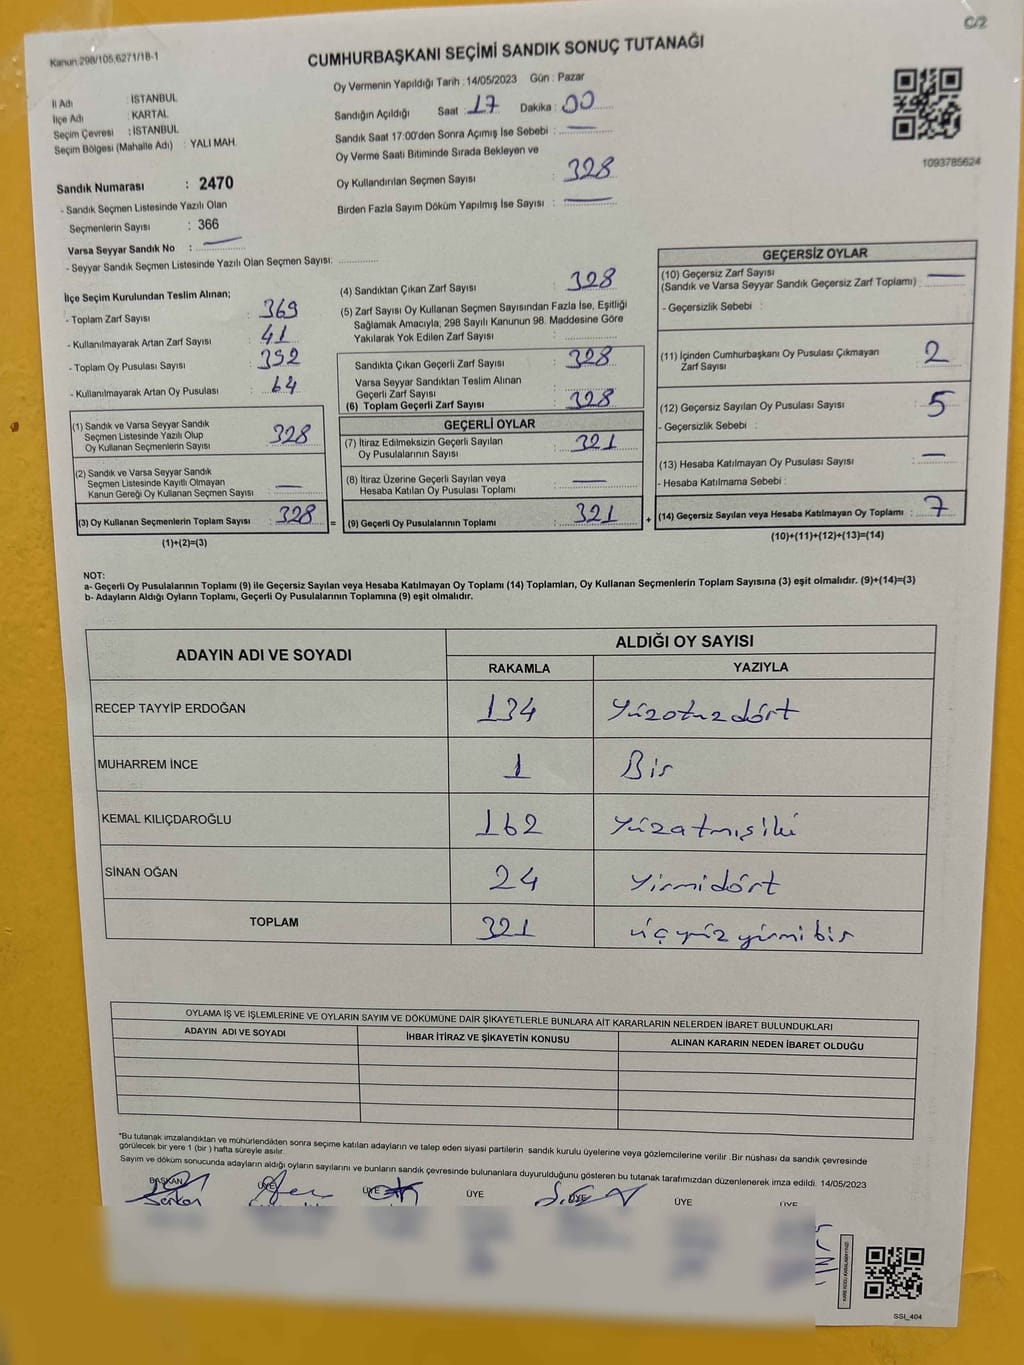 C/2
Kanun:298/105;6271/18-1
CUMHURBAŞKANI SEÇİMİ SANDIK SONUÇ TUTANAĞI
Oy Vermenin Yapıldığı Tarih : 14/05/2023 Gün : Pazar
İl Adı : İSTANBUL
İlçe Adı : KARTAL
Seçim Çevresi : İSTANBUL
Seçim Bölgesi (Mahalle Adı) : YALI MAH.
Sandığın Açıldığı Saat : 17 Dakika : 00
Sandık Saat 17:00'den Sonra Açımış İse Sebebi : —
Oy Verme Saati Bitiminde Sırada Bekleyen ve
Oy Kullandırılan Seçmen Sayısı : 328
Birden Fazla Sayım Döküm Yapılmış İse Sayısı : —
1093785624
Sandık Numarası : 2470
- Sandık Seçmen Listesinde Yazılı Olan
Seçmenlerin Sayısı : 366
Varsa Seyyar Sandık No : —
- Seyyar Sandık Seçmen Listesinde Yazılı Olan Seçmen Sayısı:
İlçe Seçim Kurulundan Teslim Alınan;
- Toplam Zarf Sayısı : 369
- Kullanılmayarak Artan Zarf Sayısı : 41
- Toplam Oy Pusulası Sayısı : 392
- Kullanılmayarak Artan Oy Pusulası : 64
(1) Sandık ve Varsa Seyyar Sandık
Seçmen Listesinde Yazılı Olup
Oy Kullanan Seçmenlerin Sayısı : 328
(2) Sandık ve Varsa Seyyar Sandık
Seçmen Listesinde Kayıtlı Olmayan
Kanun Gereği Oy Kullanan Seçmen Sayısı : —
(3) Oy Kullanan Seçmenlerin Toplam Sayısı : 328
(1)+(2)=(3)
(4) Sandıktan Çıkan Zarf Sayısı : 328
(5) Zarf Sayısı Oy Kullanan Seçmen Sayısından Fazla İse, Eşitliği
Sağlamak Amacıyla, 298 Sayılı Kanunun 98. Maddesine Göre
Yakılarak Yok Edilen Zarf Sayısı :
Sandıkta Çıkan Geçerli Zarf Sayısı : 328
Varsa Seyyar Sandıktan Teslim Alınan
Geçerli Zarf Sayısı :
(6) Toplam Geçerli Zarf Sayısı : 328
GEÇERLİ OYLAR
(7) İtiraz Edilmeksizin Geçerli Sayılan
Oy Pusulalarının Sayısı : 321
(8) İtiraz Üzerine Geçerli Sayılan veya
Hesaba Katılan Oy Pusulası Toplamı : —
= (9) Geçerli Oy Pusulalarının Toplamı : 321
GEÇERSİZ OYLAR
(10) Geçersiz Zarf Sayısı
(Sandık ve Varsa Seyyar Sandık Geçersiz Zarf Toplamı) : —
- Geçersizlik Sebebi :
(11) İçinden Cumhurbaşkanı Oy Pusulası Çıkmayan
Zarf Sayısı : 2
(12) Geçersiz Sayılan Oy Pusulası Sayısı : 5
- Geçersizlik Sebebi :
(13) Hesaba Katılmayan Oy Pusulası Sayısı : —
- Hesaba Katılmama Sebebi :
+ (14) Geçersiz Sayılan veya Hesaba Katılmayan Oy Toplamı : 7
(10)+(11)+(12)+(13)=(14)
NOT:
a- Geçerli Oy Pusulalarının Toplamı (9) ile Geçersiz Sayılan veya Hesaba Katılmayan Oy Toplamı (14) Toplamları, Oy Kullanan Seçmenlerin Toplam Sayısına (3) eşit olmalıdır. (9)+(14)=(3)
b- Adayların Aldığı Oyların Toplamı, Geçerli Oy Pusulalarının Toplamına (9) eşit olmalıdır.
ADAYIN ADI VE SOYADI ALDIĞI OY SAYISI
RAKAMLA YAZIYLA
RECEP TAYYİP ERDOĞAN 134 Yüzotuzdört
MUHARREM İNCE 1 Bir
KEMAL KILIÇDAROĞLU 162 Yüzatmışiki
SİNAN OĞAN 24 Yirmidört
TOPLAM 321 üçyüzyirmibir
OYLAMA İŞ VE İŞLEMLERİNE VE OYLARIN SAYIM VE DÖKÜMÜNE DAİR ŞİKAYETLERLE BUNLARA AİT KARARLARIN NELERDEN İBARET BULUNDUKLARI
ADAYIN ADI VE SOYADI İHBAR İTİRAZ VE ŞİKAYETİN KONUSU ALINAN KARARIN NEDEN İBARET OLDUĞU
*Bu tutanak imzalandıktan ve mühürlendikten sonra seçime katılan adayların ve talep eden siyasi partilerin sandık kurulu üyelerine veya gözlemcilerine verilir .Bir nüshası da sandık çevresinde
görülecek bir yere 1 (bir ) hafta süreyle asılır.
Sayım ve döküm sonucunda adayların aldığı oyların sayılarını ve bunların sandık çevresinde bulunanlara duyurulduğunu gösteren bu tutanak tarafımızdan düzenlenerek imza edildi. 14/05/2023
BAŞKAN ÜYE ÜYE ÜYE ÜYE ÜYE ÜYE
Serkan
SSİ_404